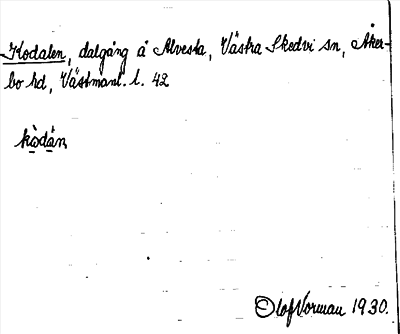 Kodalen, dalgång å Alvesta, Västra Skedvi sn, Åker-
bo hd, Västmanl. l. 42
kòdán
Olof Vorman 1930.